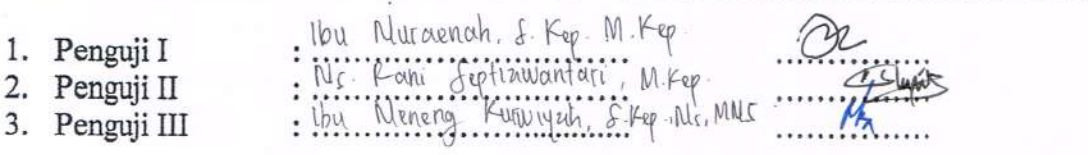 1. Penguji I : Ibu Nuraenah, S. Kep. M. Kep
2. Penguji II : Ns. Rani Septiawantari, M.Kep.
3. Penguji III : Ibu Neneng Kurwiyah, S.Kep.,Ns, MNS